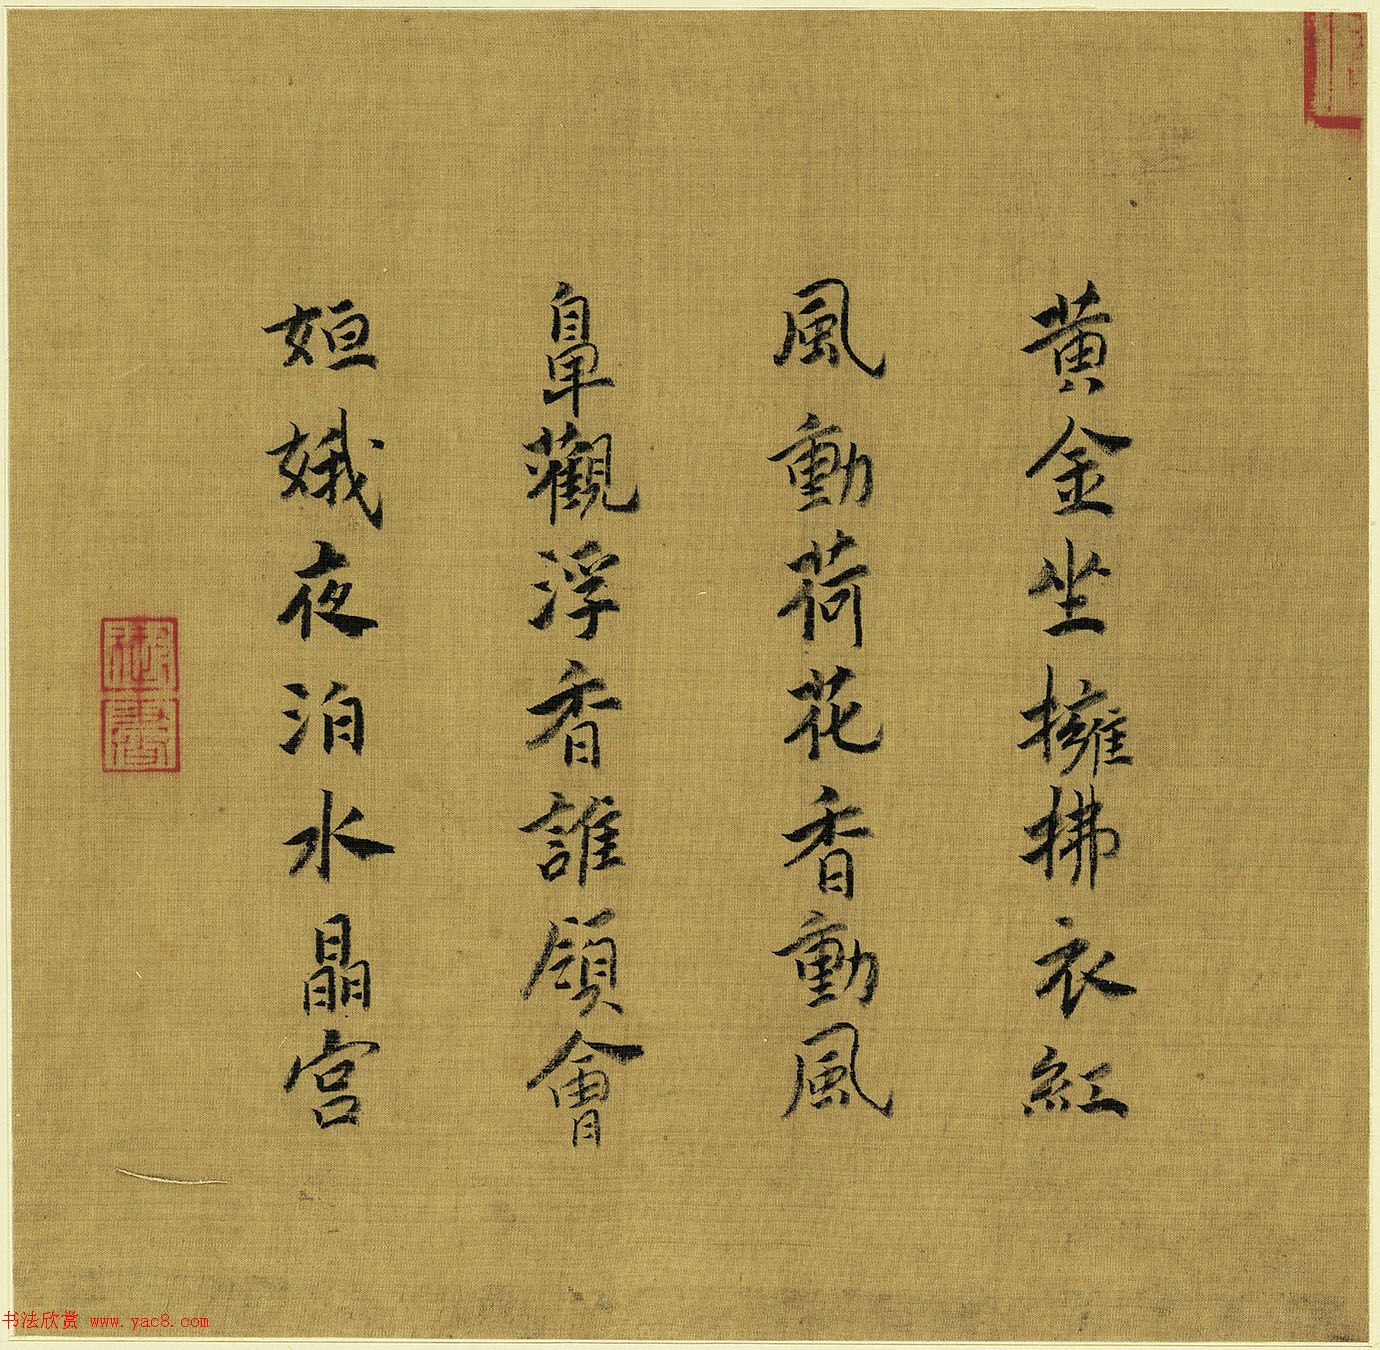 黄金坐擁拂衣紅
風動荷花香動風
鼻觀浮香誰領會
姮娥夜泊水晶宮
御書
书法欣赏 www.yac8.com